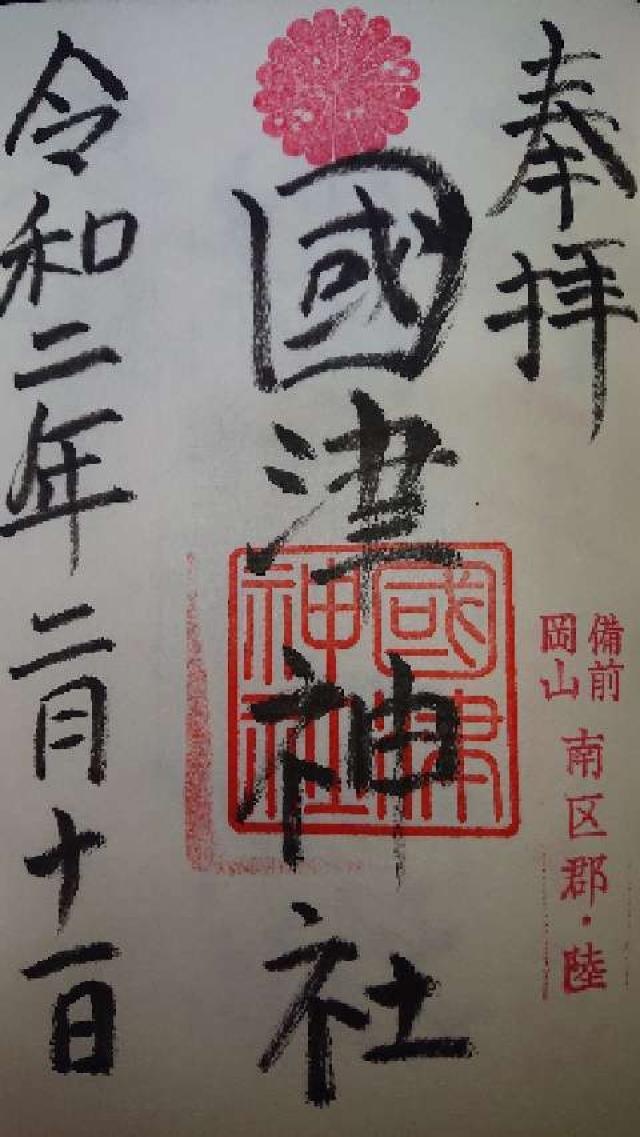 奉拝
備前
岡山
南区郡・陸
國津神社
國津
神社
令和二年二月十一日